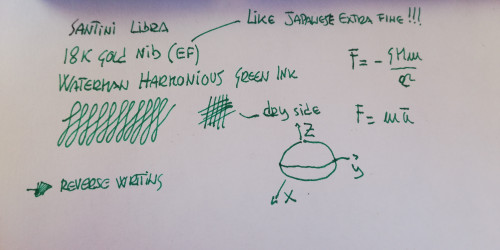 SANTINI LIBRA
LIKE JAPANESE EXTRA FINE!!!
18K GOLD NIB (EF)
WATERMAN HARMONIOUS GREEN INK
dry side
→ REVERSE WRITING
Z
y
X
F = - GMm
F = ma̅